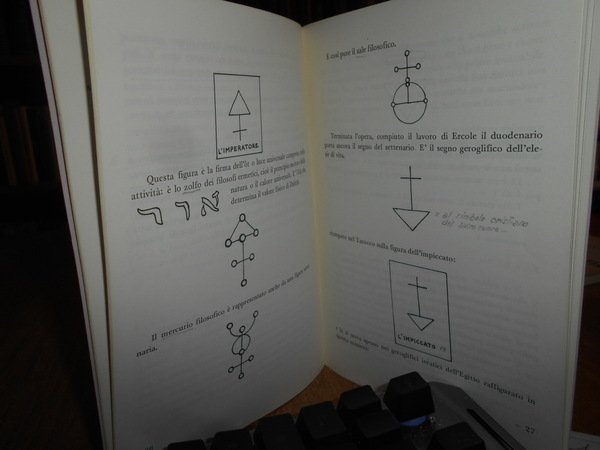 L'IMPERATORE
Questa figura è la firma dell'ôr o luce universale
attività: è lo zolfo dei filosofi ermetici, cioè il principio
natura o il calore universale.
determina il valore fisico di
אור
Il mercurio filosofico è rappresentato anche da una figura
naria.
E così pure il sale filosofico.
Terminata l'opera, compiuto il lavoro di Ercole il duodenario
porta ancora il segno del settenario. E' il segno geroglifico dell'ele-
di vita,
nel Tarocco sulla figura dell'impiccato:
L'IMPICCATO
e si trova spesso nei geroglifici ieratici dell'Egitto raffigurato in
— 27